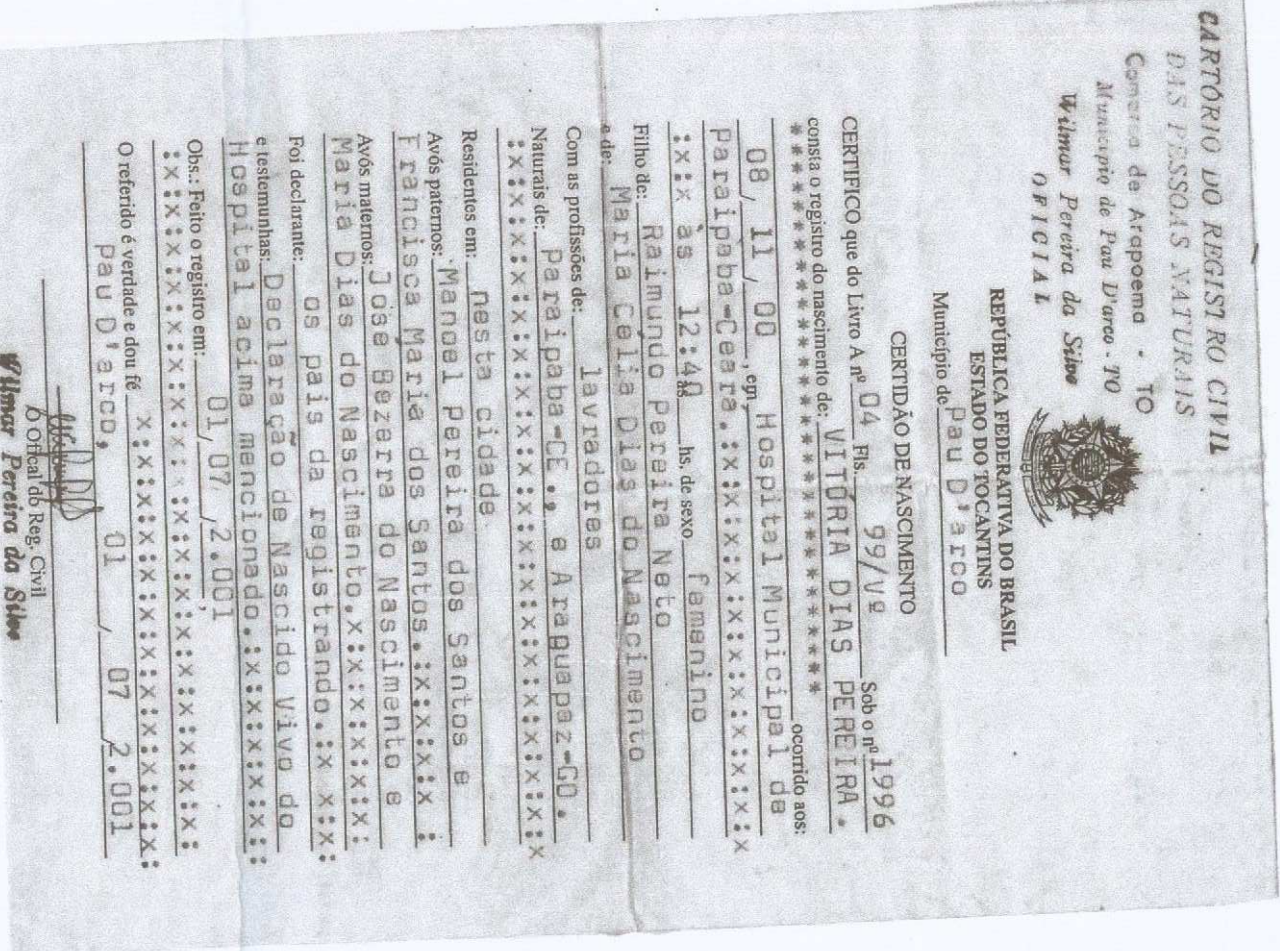 CARTÓRIO DO REGISTRO CIVIL
DAS PESSOAS NATURAIS
Comarca de Arapoema - TO
Município de Pau D'arco - TO
Wilmar Pereira da Silva
OFICIAL
REPÚBLICA FEDERATIVA DO BRASIL
ESTADO DO TOCANTINS
Município de Pau D'arco
CERTIDÃO DE NASCIMENTO
CERTIFICO que do Livro A nº 04 Fls. 99/Vº Sob o nº 1996
consta o registro do nascimento de: VITÓRIA DIAS PEREIRA.
************************** ocorrido aos:
08/ 11 /00 , em, Hospital Municipal de
Paraipaba-Ceará.:x:x:x:x:x:x:x:x:x:x
:x:x às 12:40 hs. de sexo femenino
Filho de: Raimundo Pereira Neto
e de: Maria Celia Dias do Nascimento
Com as profissões de: lavradores
Naturais de: paraipaba-CE., e Araguapaz-GO.
:x:x:x:x:x:x:x:x:x:x:x:x:x:x:x:x:x:x:x
Residentos em: nesta cidade
Avós paternos: Manoel pereira dos Santos e
Francisca Maria dos Santos.:x:x:x:x :
Avós maternos: José Bezerra do Nascimento e
Maria Dias do Nascimento.x:x:x:x:x:x:
Foi declarante: os pais da registrando.:x x:x:
e testemunhas: Declaração de Nascido Vivo do
Hospital acima mencionado.:x:x:x:x:x:
Obs.: Feito o registro em: 01/ 07 /2.001
:x:x:x:x:x:x:x:x:x:x:x:x:x:x:x:x:x:
O referido é verdade e dou fé x:x:x:x:x:x:x:x:x:x:x:
Pau D'arco, 01 / 07 /2.001
O Offcal do Reg. Civil
Wilmar Pereira da Silva